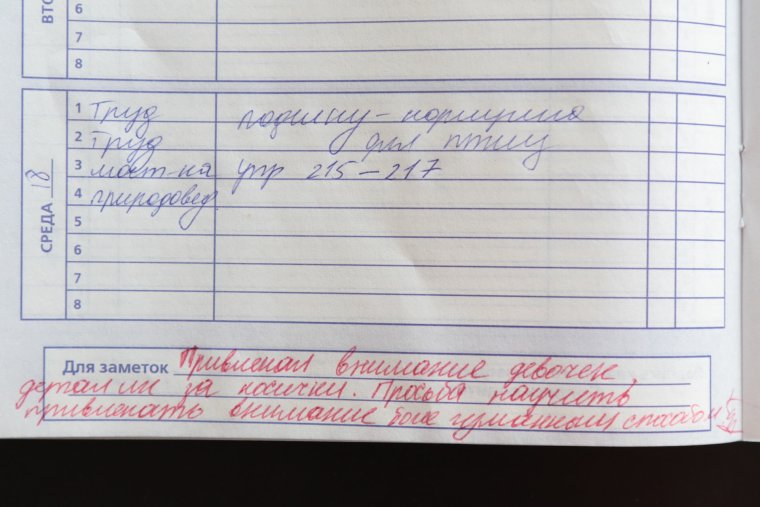 ВТО
6
7
8
СРЕДА 18
1 Труд кормушка
2 Труд для птиц
3 мат-ка упр 215-217
4 природовед.
5
6
7
8
Для заметок Привлекал внимание девочек,
дергал их за косички. Просьба научить
привлекать внимание более гуманным способом